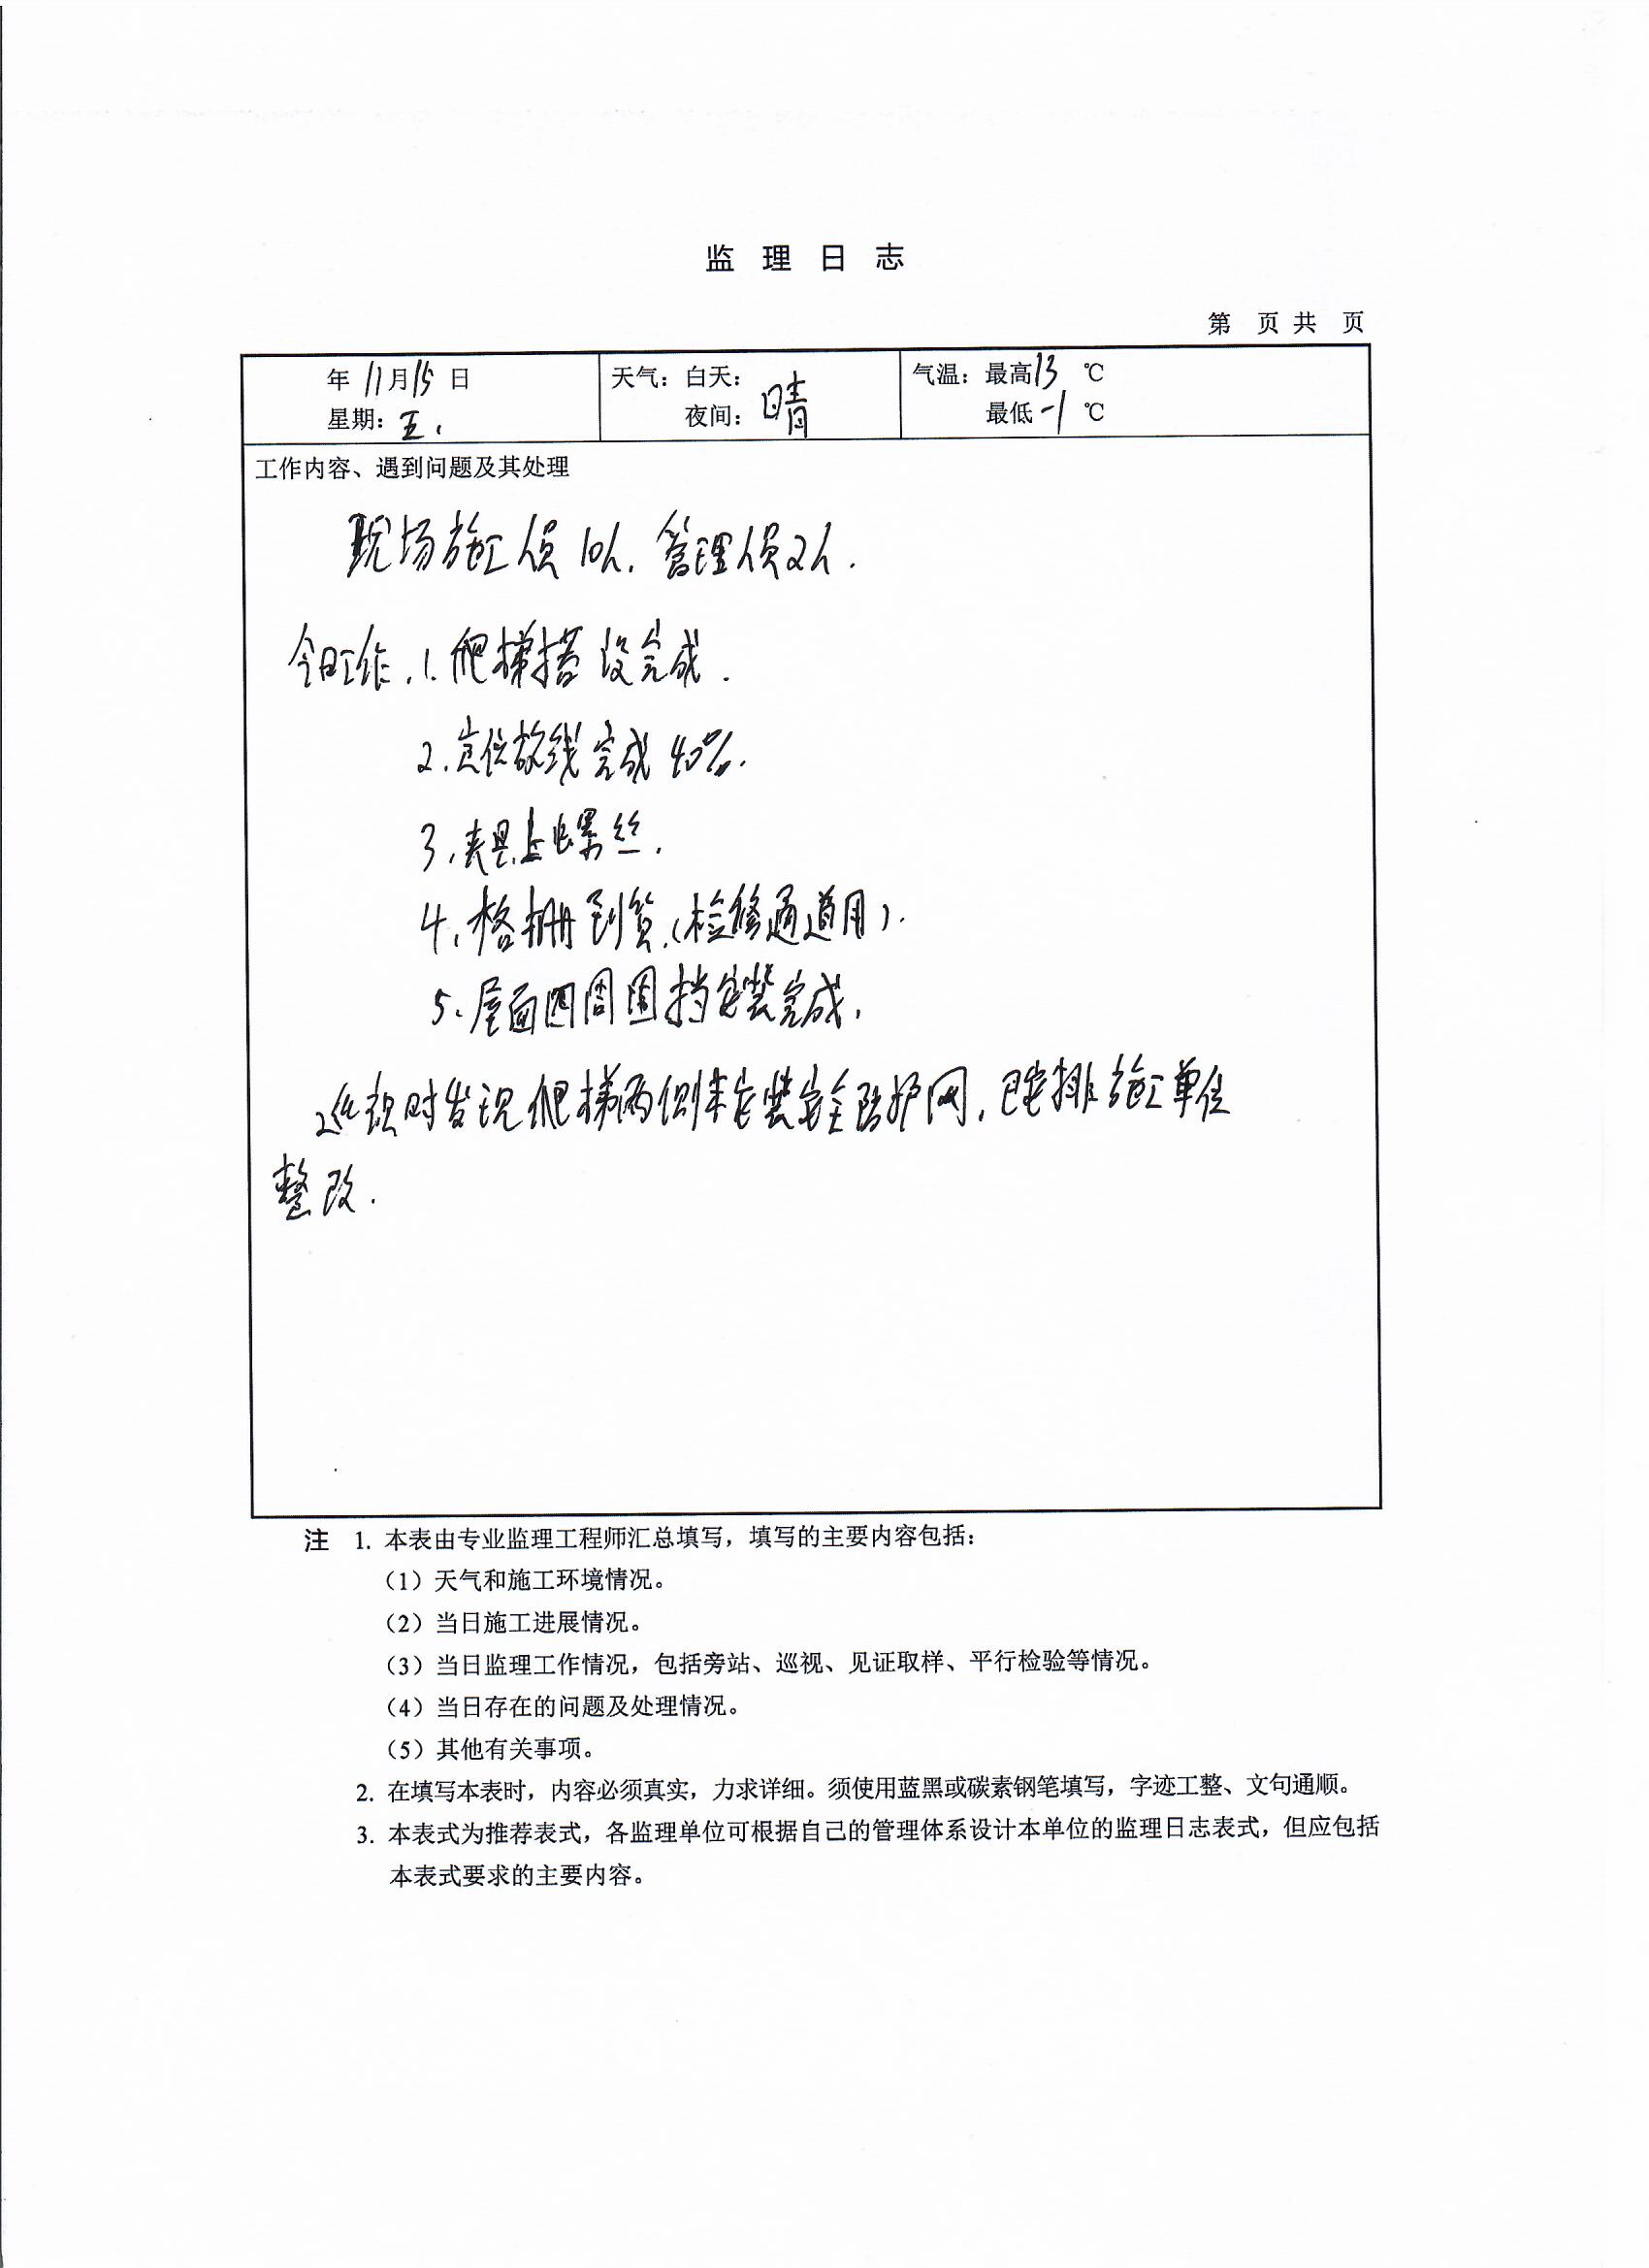 监理日志
第 页 共 页
年 11月15日
星期：五.
天气：白天：
夜间：晴
气温：最高13 ℃
最低-1 ℃
工作内容、遇到问题及其处理
现场施工人员10人，管理人员2人.
今日工作.1.爬梯搭设完成.
2.定位放线完成40%.
3.夹具上螺丝.
4.格栅到货.(检修通道用).
5.屋面四周围挡安装完成.
巡视时发现爬梯两侧未安装安全防护网，已安排施工单位
整改.
注 1. 本表由专业监理工程师汇总填写，填写的主要内容包括：
（1）天气和施工环境情况。
（2）当日施工进展情况。
（3）当日监理工作情况，包括旁站、巡视、见证取样、平行检验等情况。
（4）当日存在的问题及处理情况。
（5）其他有关事项。
2. 在填写本表时，内容必须真实，力求详细。须使用蓝黑或碳素钢笔填写，字迹工整、文句通顺。
3. 本表式为推荐表式，各监理单位可根据自己的管理体系设计本单位的监理日志表式，但应包括
本表式要求的主要内容。